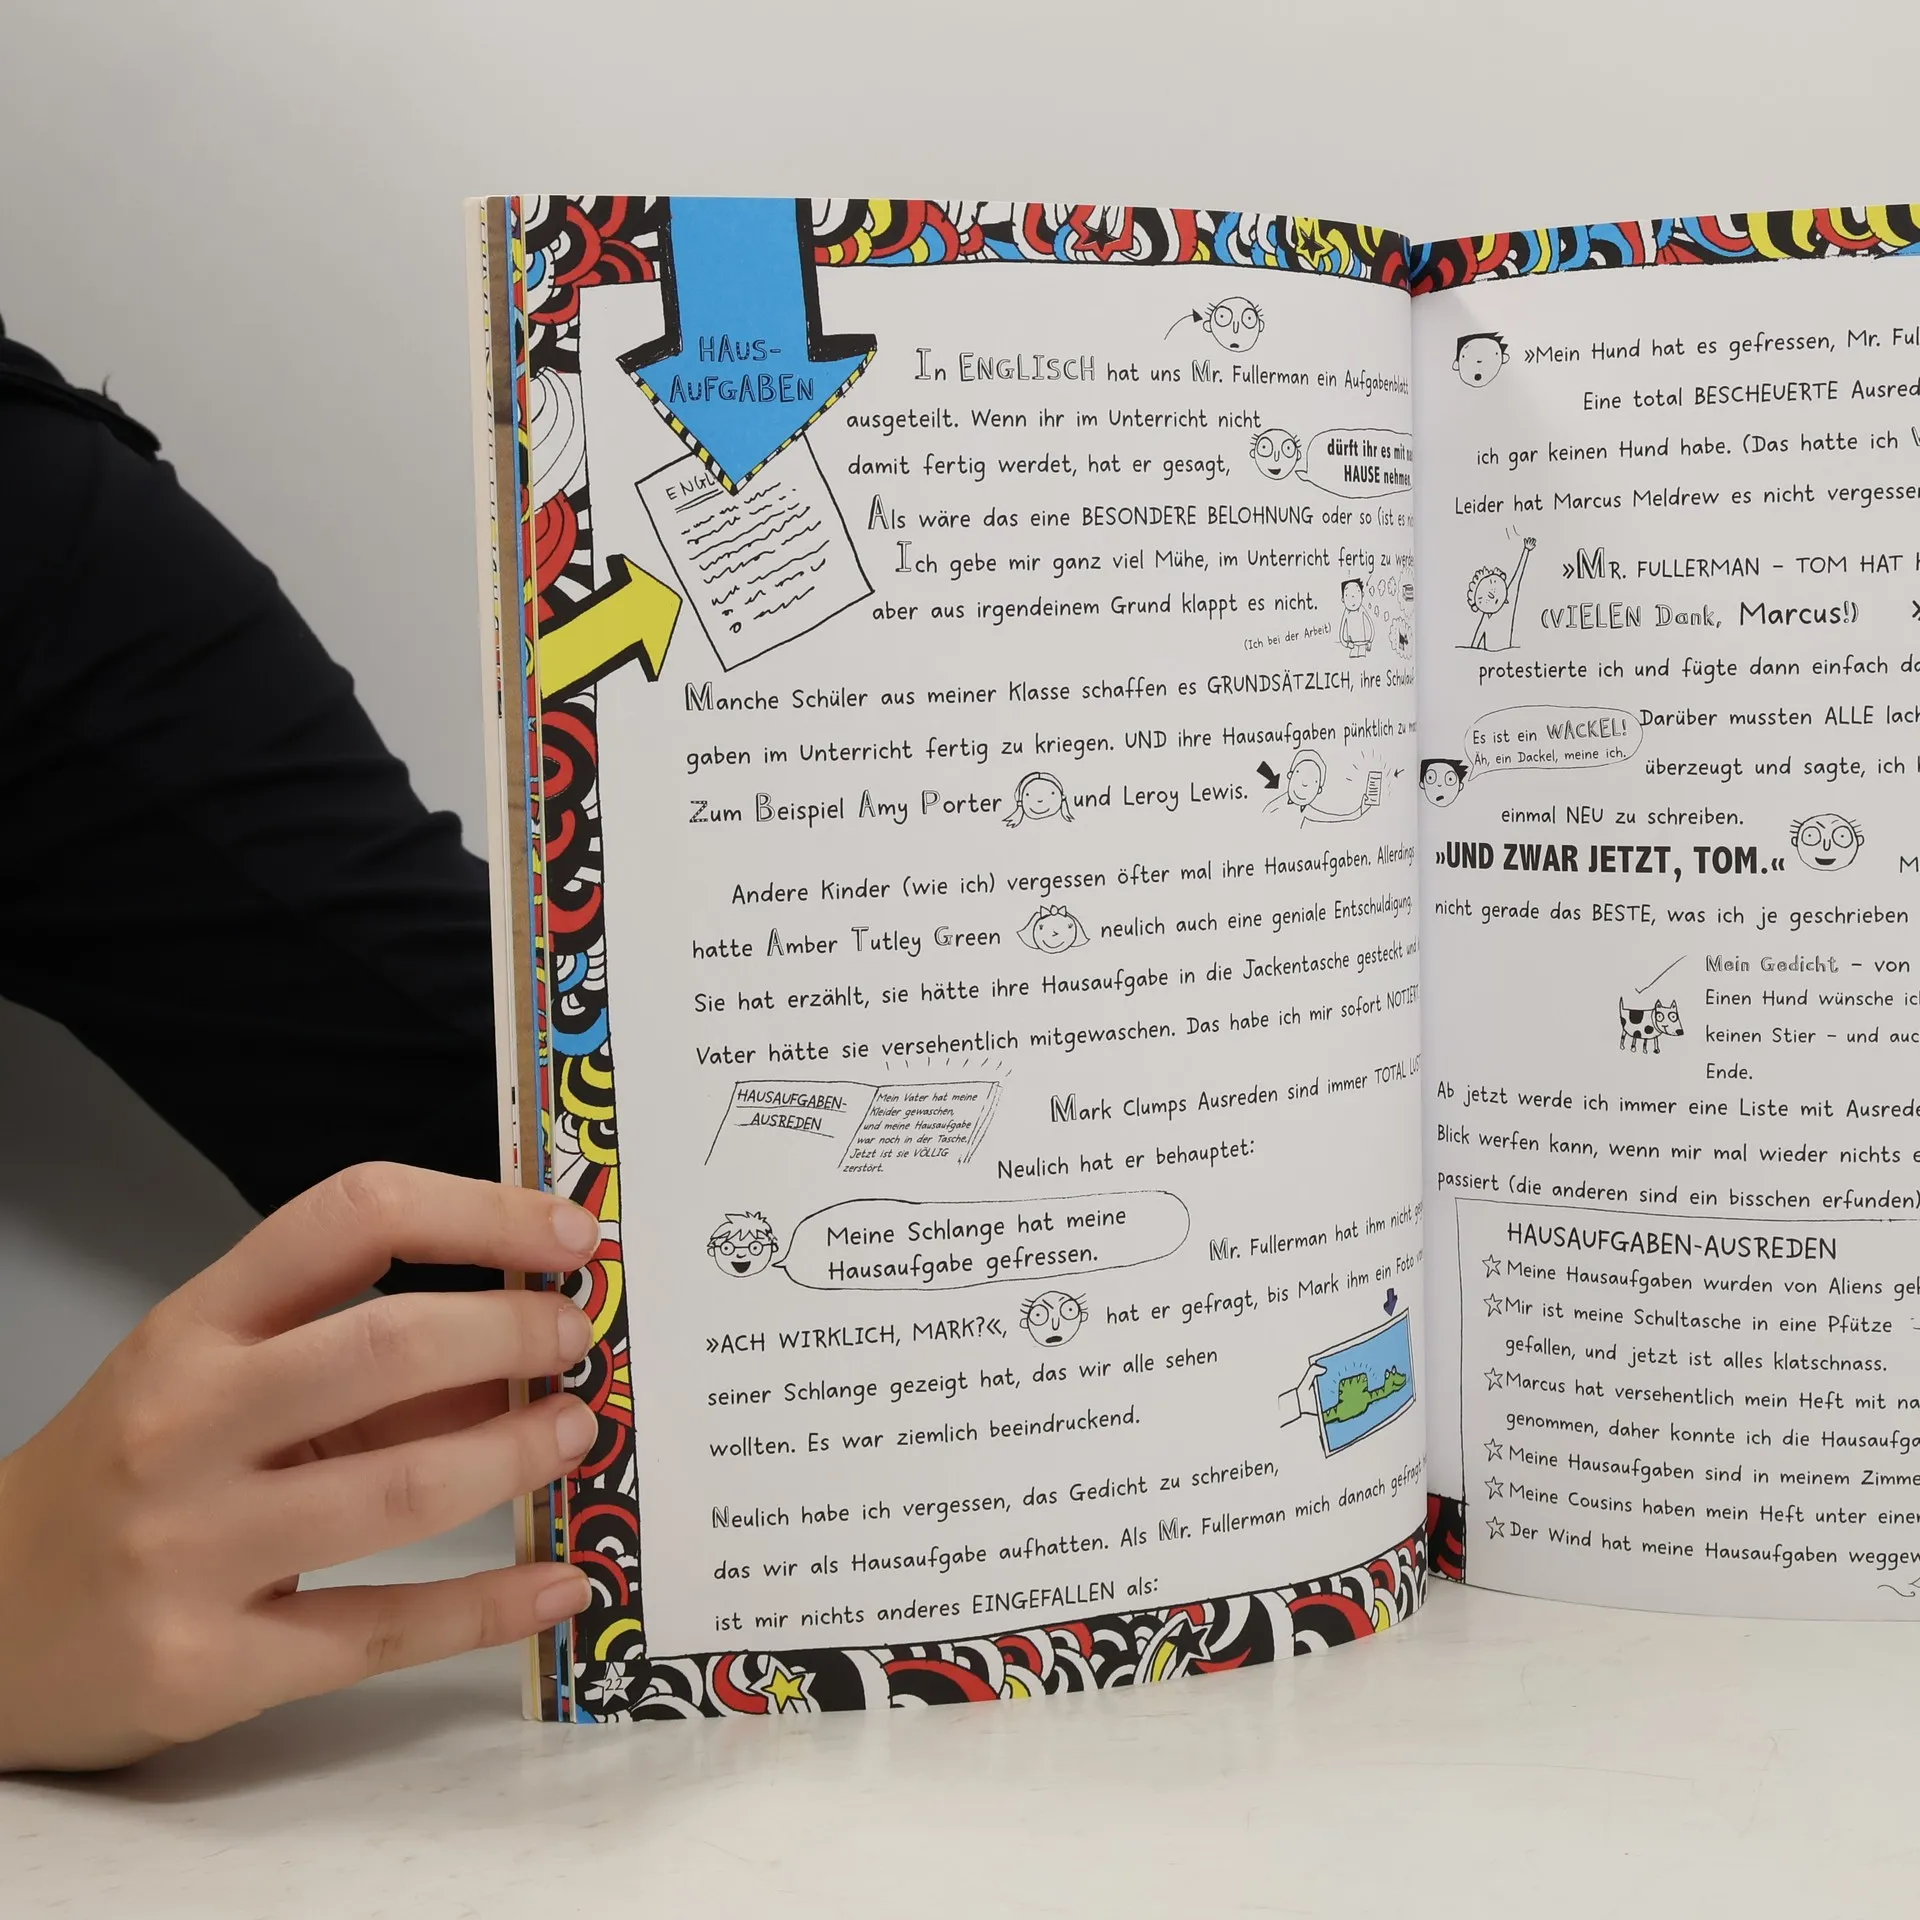 HAUS-
AUFGABEN
ENGL
In ENGLISCH hat uns Mr. Fullerman ein Aufgabenblatt
ausgeteilt. Wenn ihr im Unterricht nicht
damit fertig werdet, hat er gesagt,
dürft ihr es mit
HAUSE nehmen.
Als wäre das eine BESONDERE BELOHNUNG oder so (ist es
Ich gebe mir ganz viel Mühe, im Unterricht fertig zu
aber aus irgendeinem Grund klappt es nicht.
(Ich bei der Arbeit)
Manche Schüler aus meiner Klasse schaffen es GRUNDSÄTZLICH, ihre
gaben im Unterricht fertig zu kriegen. UND ihre Hausaufgaben pünktlich zu
Zum Beispiel Amy Porter und Leroy Lewis.
Andere Kinder (wie ich) vergessen öfter mal ihre Hausaufgaben. Allerdings
hatte Amber Tutley Green neulich auch eine geniale Entschuldigung.
Sie hat erzählt, sie hätte ihre Hausaufgabe in die Jackentasche gesteckt und
Vater hätte sie versehentlich mitgewaschen. Das habe ich mir sofort
HAUSAUFGABEN-
AUSREDEN
Mein Vater hat meine
Kleider gewaschen,
und meine Hausaufgabe
war noch in der Tasche.
Jetzt ist sie VÖLLIG
zerstört.
Mark Clumps Ausreden sind immer TOTAL
Neulich hat er behauptet:
Meine Schlange hat meine
Hausaufgabe gefressen.
Mr. Fullerman hat ihm nicht
»ACH WIRKLICH, MARK?«, hat er gefragt, bis Mark ihm ein Foto
seiner Schlange gezeigt hat, das wir alle sehen
wollten. Es war ziemlich beeindruckend.
Neulich habe ich vergessen, das Gedicht zu schreiben,
das wir als Hausaufgabe aufhatten. Als Mr. Fullerman mich danach gefragt
ist mir nichts anderes EINGEFALLEN als:
22
»Mein Hund hat es gefressen, Mr. Ful
Eine total BESCHEUERTE Ausred
ich gar keinen Hund habe. (Das hatte ich
Leider hat Marcus Meldrew es nicht vergessen
»MR. FULLERMAN – TOM HAT
(VIELEN Dank, Marcus!)
protestierte ich und fügte dann einfach
Es ist ein WACKEL!
Äh, ein Dackel, meine ich.
Darüber mussten ALLE lach
überzeugt und sagte, ich
einmal NEU zu schreiben.
»UND ZWAR JETZT, TOM.«
M
nicht gerade das BESTE, was ich je geschrieben
Mein Gedicht – von
Einen Hund wünsche ich
keinen Stier – und auc
Ende.
Ab jetzt werde ich immer eine Liste mit Ausrede
Blick werfen kann, wenn mir mal wieder nichts
passiert (die anderen sind ein bisschen erfunden)
HAUSAUFGABEN-AUSREDEN
Meine Hausaufgaben wurden von Aliens
Mir ist meine Schultasche in eine Pfütze
gefallen, und jetzt ist alles klatschnass.
Marcus hat versehentlich mein Heft mit na
genommen, daher konnte ich die Hausaufga
Meine Hausaufgaben sind in meinem Zimme
Meine Cousins haben mein Heft unter einer
Der Wind hat meine Hausaufgaben weggew